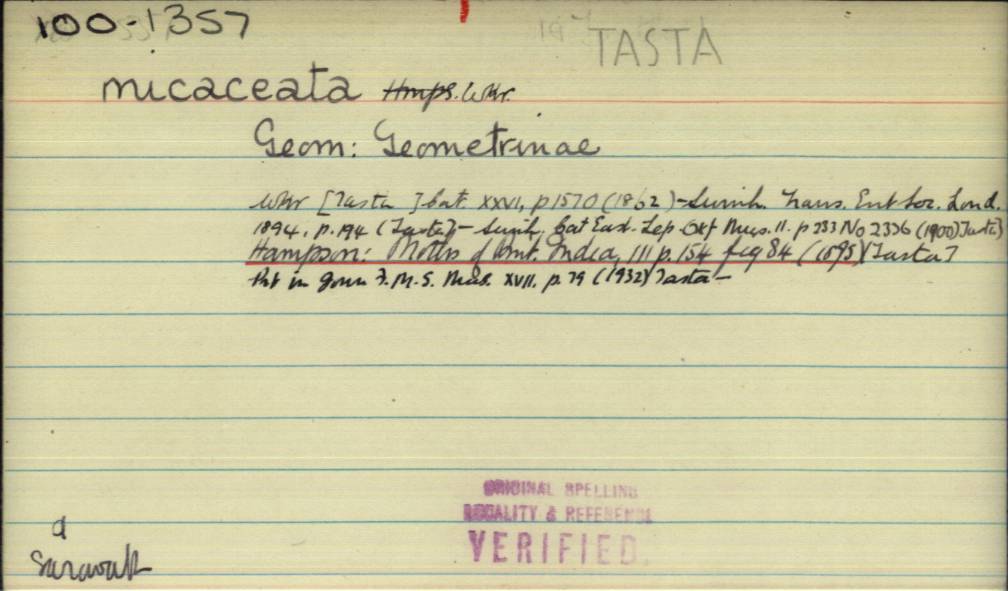 100-1357
TASTA
micaceata Hmps. Wkr.
Geom: Geometrinae
Wkr [Tasta] Cat. XXVI, p1570 (1862) - Swinh. Trans. Ent Soc. Lond.
1894, p.194 (Tasta) - Swinh. Cat East. Lep Oxf Mus. II. p 233 No 2336 (1900) Tasta)
Hampson: Moths of Brit. India, III p.154 fig 84 (1895) (Tasta)
Prt in Journ F.M.S. Mus. XVII. p. 79 (1932) Tasta -
ORIGINAL SPELLING
LOCALITY & REFERENCE
VERIFIED.
a
Sarawak